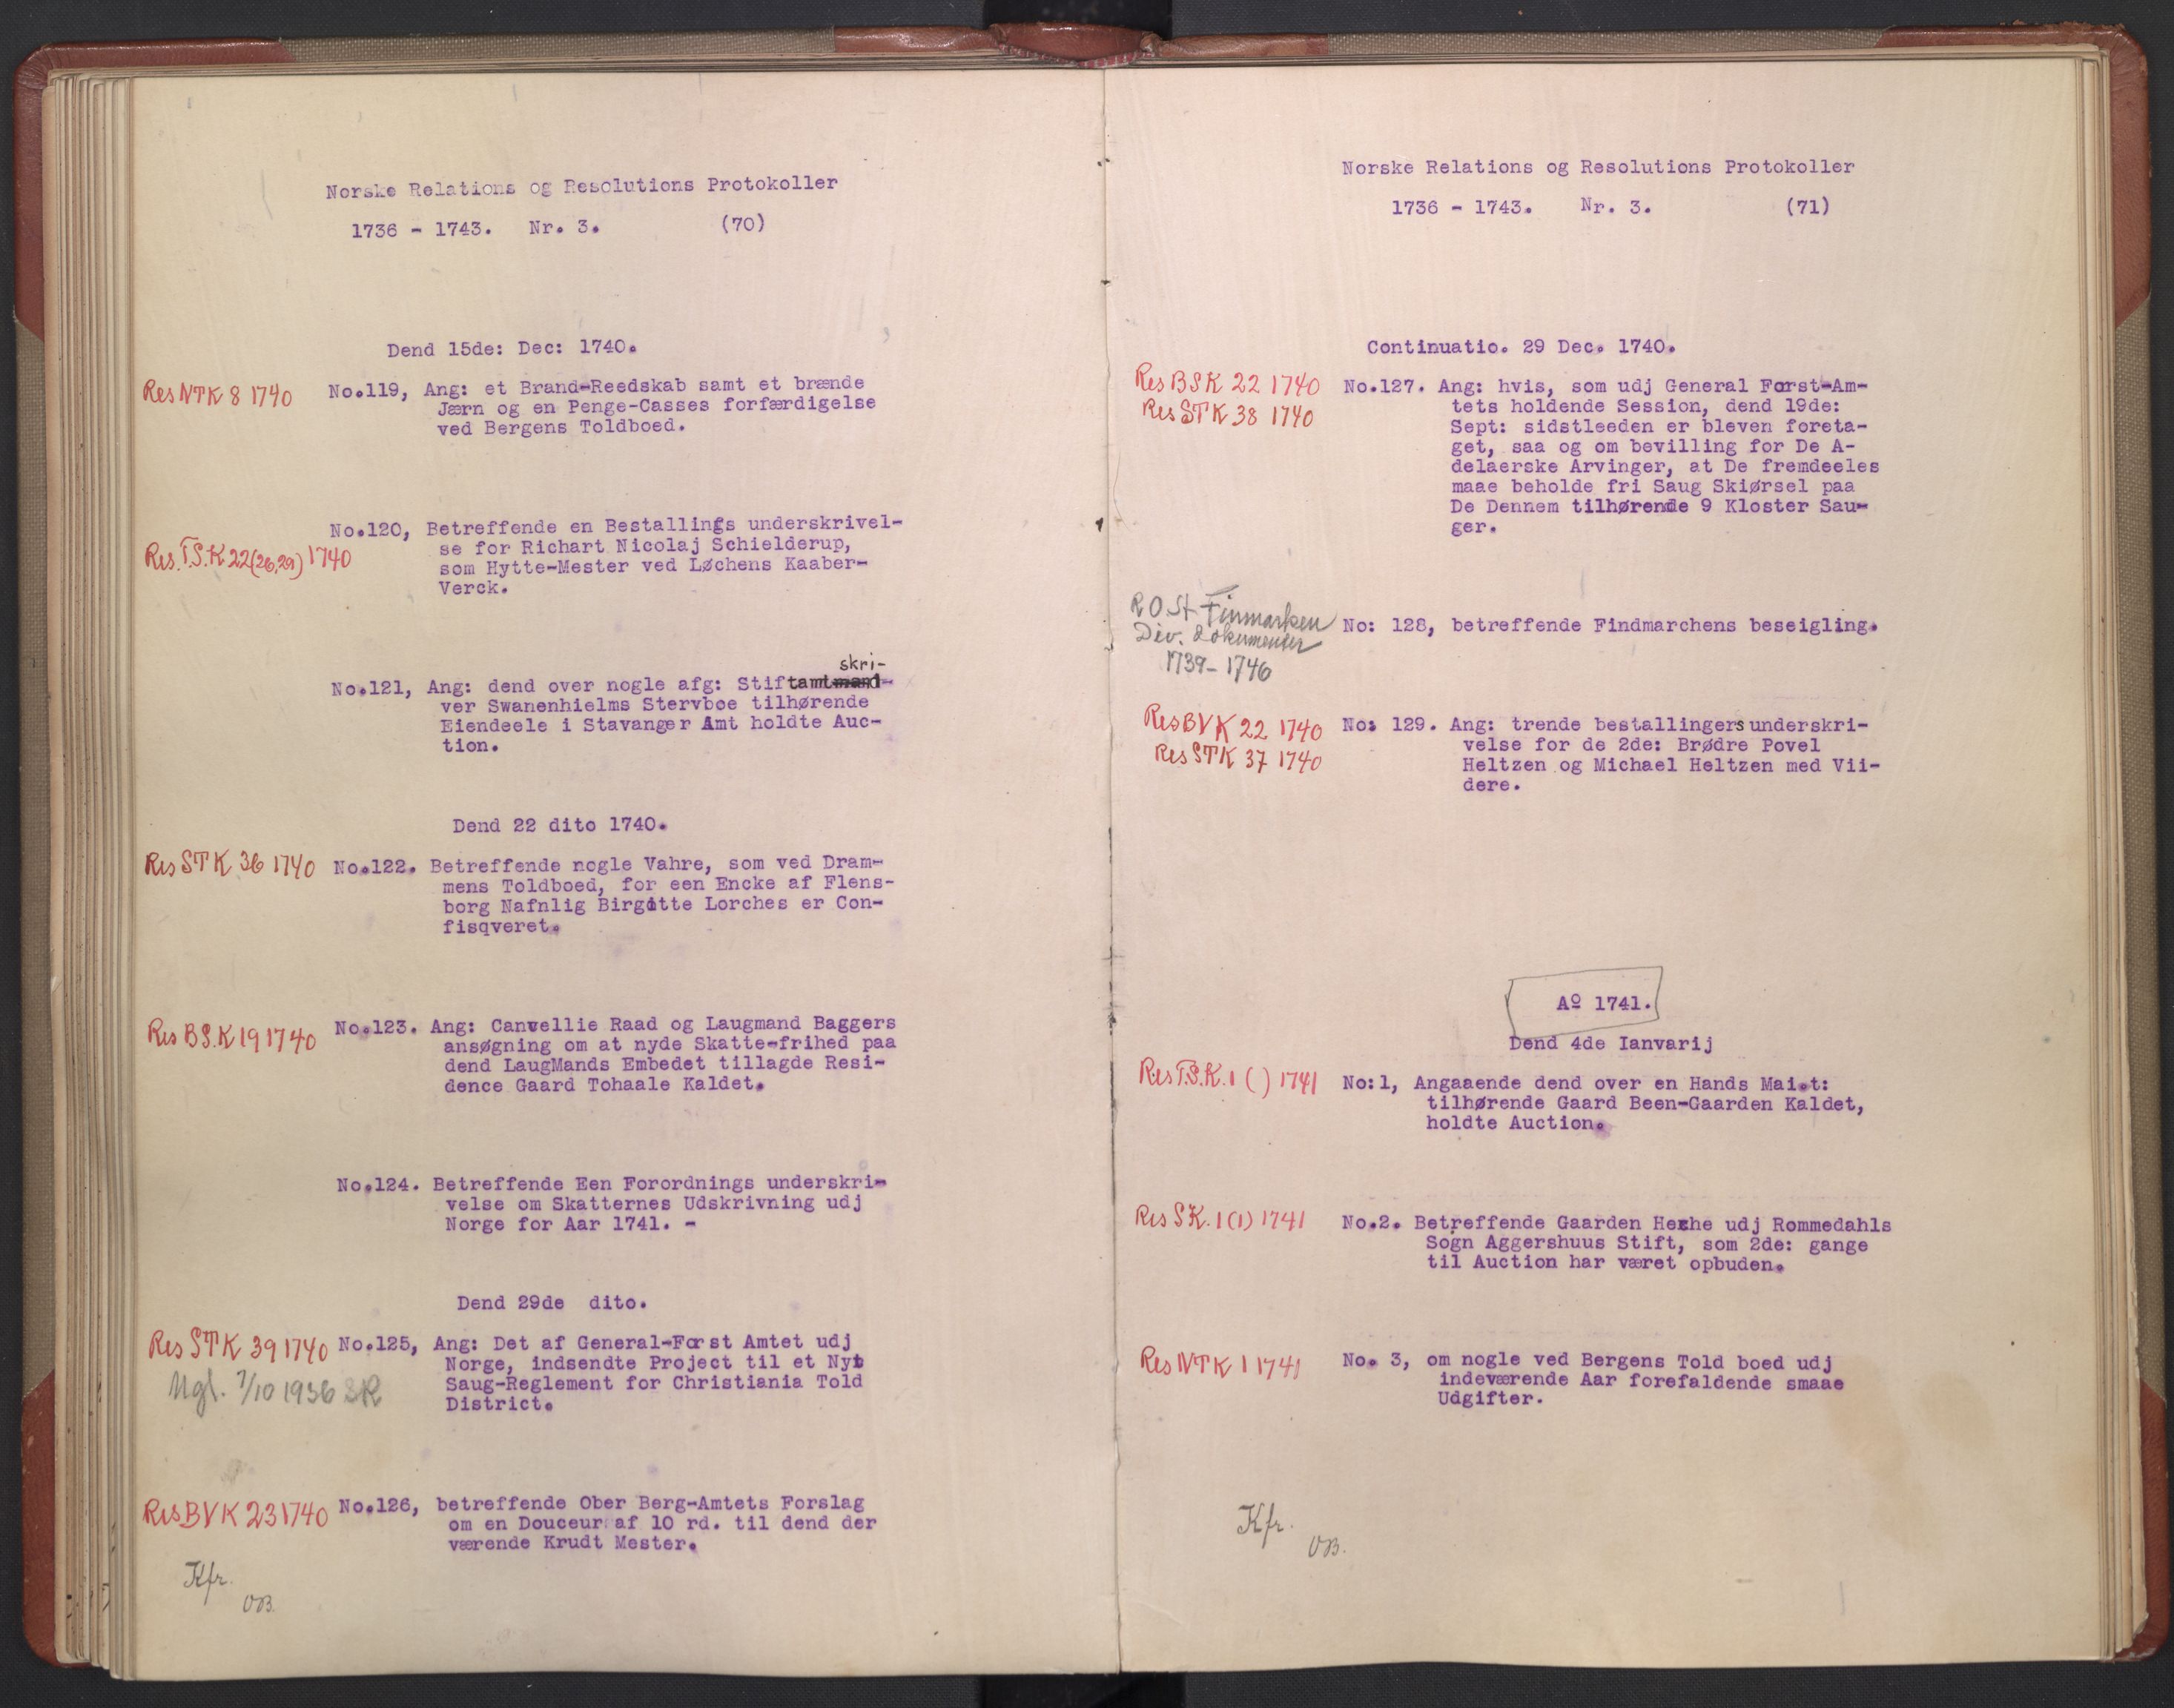 Norske Relations og Resolutions Protokoller
1736 - 1743. Nr. 3. (70)
Dend 15de: Dec: 1740.
Res NTK 8 1740
No.119, Ang: et Brand-Reedskab samt et brænde
Jærn og en Penge-Casses forfærdigelse
ved Bergens Toldboed.
No.120, Betreffende en Bestallings underskrivel-
Res. T.S.K 22 (26,29) 1740
se for Richart Nicolaj Schielderup,
som Hytte-Mester ved Løchens Kaaber-
Verck.
skri-
No.121, Ang: dend over nogle afg: Stiftamtmand-
ver Swanenhielms Stervboe tilhørende
Eiendeele i Stavanger Amt holdte Auc-
tion.
Dend 22 dito 1740.
Res STK 36 1740
No.122. Betreffende nogle Vahre, som ved Dram-
mens Toldboed, for een Encke af Flens-
borg Nafnlig Birgitte Lorches er Con-
fisqveret.
Res B.S.K 19 1740
No.123. Ang: Canvellie Raad og Laugmand Baggers
ansøgning om at nyde Skatte-frihed paa
dend LaugMands Embedet tillagde Resi-
dence Gaard Tohaale Kaldet.
No.124. Betreffende Een Forordnings underskri-
velse om Skatternes Udskrivning udj
Norge for Aar 1741. -
Dend 29de dito.
Res STK 39 1740
No.125, Ang: Det af General-Forst Amtet udj
Norge, indsendte Project til et Nyt
Ugl. 7/10 1936 SR
Saug-Reglement for Christiania Told
District.
Res BVK 23 1740
No.126, betreffende Ober Berg-Amtets Forslag
om en Douceur af 10 rd. til dend der
værende Krudt Mester.
Kfr.
OB.
Norske Relations og Resolutions Protokoller
1736 - 1743. Nr. 3. (71)
Continuatio. 29 Dec. 1740.
Res BSK 22 1740
Res STK 38 1740
No.127. Ang: hvis, som udj General Forst-Am-
tets holdende Session, dend 19de:
Sept: sidstleeden er bleven foreta-
get, saa og om bevilling for De A-
delaerske Arvinger, at De fremdeeles
maae beholde fri Saug Skiørsel paa
De Dennem tilhørende 9 Kloster Sau-
ger.
R O. St. Finmarken
Div. Dokumenter
1739-1746
No: 128, betreffende Findmarchens beseigling.
Res BVK 22 1740
Res STK 37 1740
No: 129. Ang: trende bestallingers underskri-
velse for de 2de: Brødre Povel
Heltzen og Michael Heltzen med Vii-
dere.
Aº 1741.
Dend 4de Ianvarij
Res T.S.K. 1 ( ) 1741
No:1, Angaaende dend over en Hands Maiet:
tilhørende Gaard Been-Gaarden Kaldet,
holdte Auction.
Res S.K. 1 (1) 1741
No.2. Betreffende Gaarden Hexhe udj Rommedahls
Sogn Aggershuus Stift, som 2de: gange
til Auction har været opbuden.
Res NTK 1 1741
No. 3, om nogle ved Bergens Told boed udj
indeværende Aar forefaldende smaae
Udgifter.
Kfr.
OB.